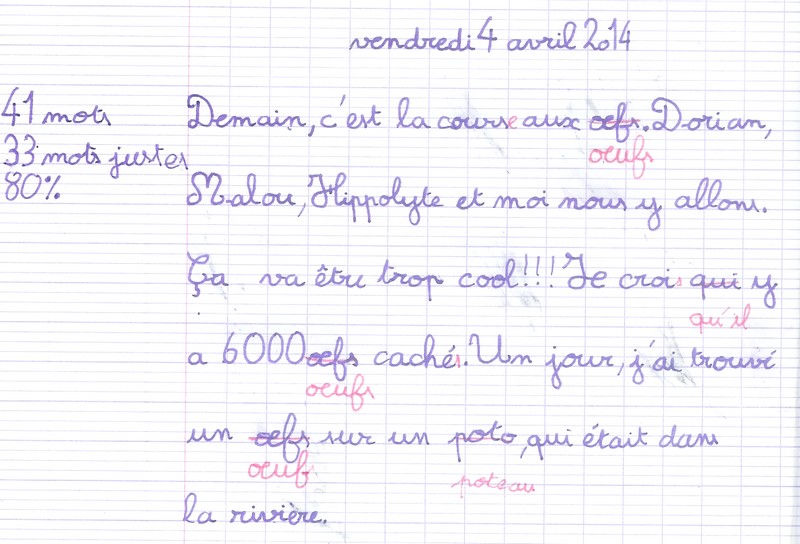 vendredi 4 avril 2014
41 mots
Demain, c'est la course aux oefs. Dorian,
33 mots justes
oeufs
80%
Malou, Hippolyte et moi nous y allons.
Ça va être trop cool!!! Je crois qui y
qu'il
a 6000 oefs cachés. Un jour, j'ai trouvé
oeufs
un oefs sur un poto, qui était dans
oeuf
poteau
la rivière.